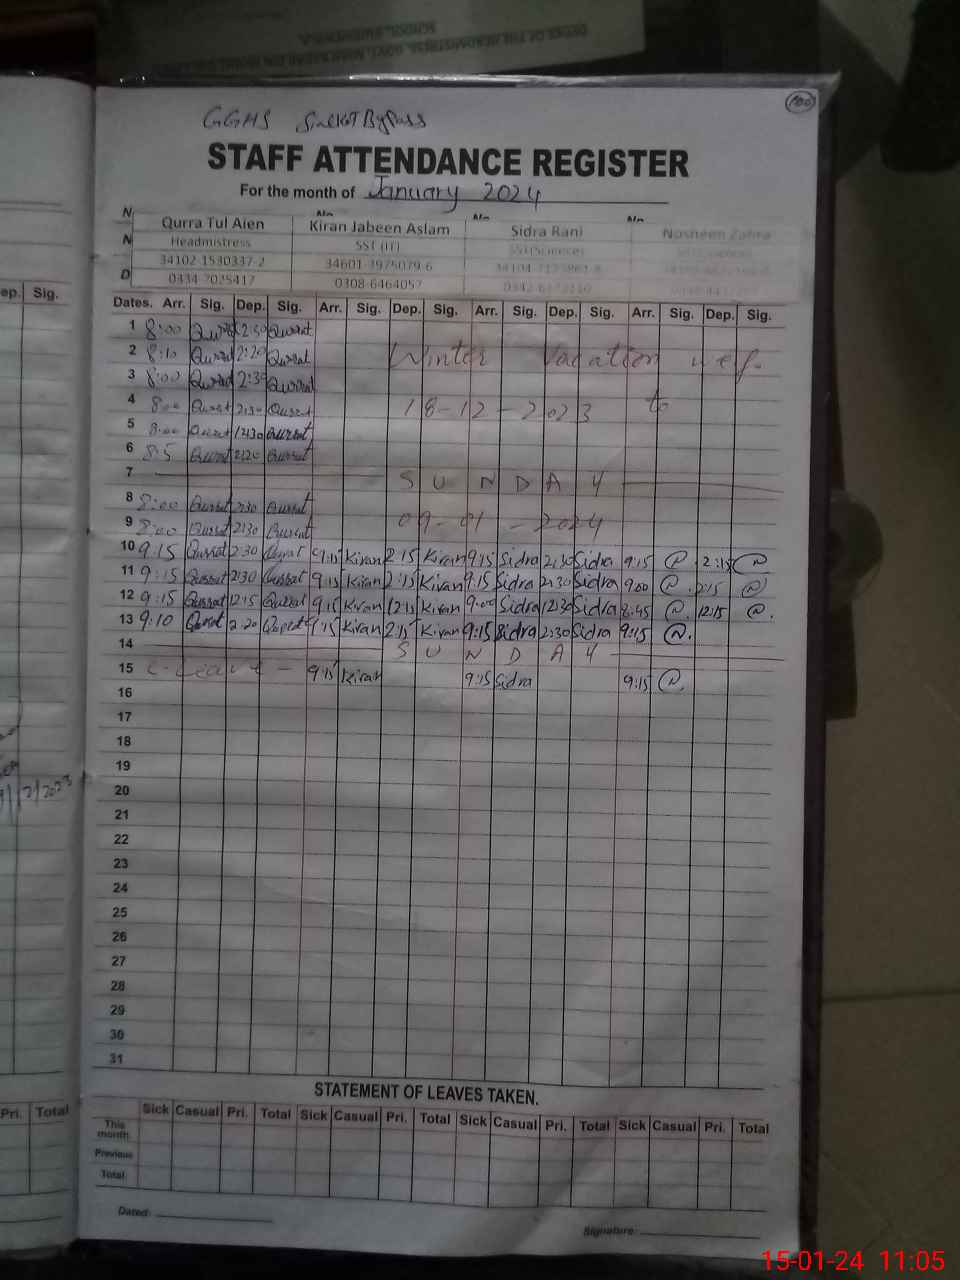 100
GGHS Sialkot Bypass
STAFF ATTENDANCE REGISTER
For the month of January 2024
Qurra Tul Aien Kiran Jabeen Aslam Sidra Rani Nosheen Zahra
Headmistress SST (IT) SST(Science)
34102-1530337-2 34601-7975079-6
0334-7025417 0308-6464057
ep. Sig.
Dates. Arr. Sig. Dep. Sig. Arr. Sig. Dep. Sig. Arr. Sig. Dep. Sig. Arr. Sig. Dep. Sig.
1 8:00 Qurrat 2:30 Qurrat
2 8:10 Qurrat 2:20 Qurrat Winter Vacation w.e.f.
3 8:00 Qurrat 2:30 Qurrat
4 8:00 Qurrat 2:30 Qurrat 18-12-2023 to
5 8:00 Qurrat 12:30 Qurrat
6 8:5 Qurrat 2:20 Qurrat
7 SUNDAY
8 8:00 Qurrat 2:30 Qurrat
9 8:00 Qurrat 2:30 Qurrat 09-01-2024
10 9:15 Qurrat 2:30 Qurrat 9:15 Kiran 2:15 Kiran 9:15 Sidra 2:30 Sidra 9:15 2:15
11 9:15 Qurrat 2:30 Qurrat 9:15 Kiran 2:15 Kiran 9:15 Sidra 2:30 Sidra 9:00 2:15
12 9:15 Qurrat 12:15 Qurrat 9:15 Kiran 12:15 Kiran 9:00 Sidra 12:30 Sidra 8:45 12:15
13 9:10 Qurrat 2:20 Qurrat 9:15 Kiran 2:15 Kiran 9:15 Sidra 2:30 Sidra 9:15
14 SUNDAY
15 C-Leave - 9:15 Kiran 9:15 Sidra 9:15
16
17
18
19
20
21
22
23
24
25
26
27
28
29
30
31
STATEMENT OF LEAVES TAKEN.
Pri. Total
Sick Casual Pri. Total Sick Casual Pri. Total Sick Casual Pri. Total Sick Casual Pri. Total
This month
Previous
Total
Dated:
Signature:
15-01-24 11:05